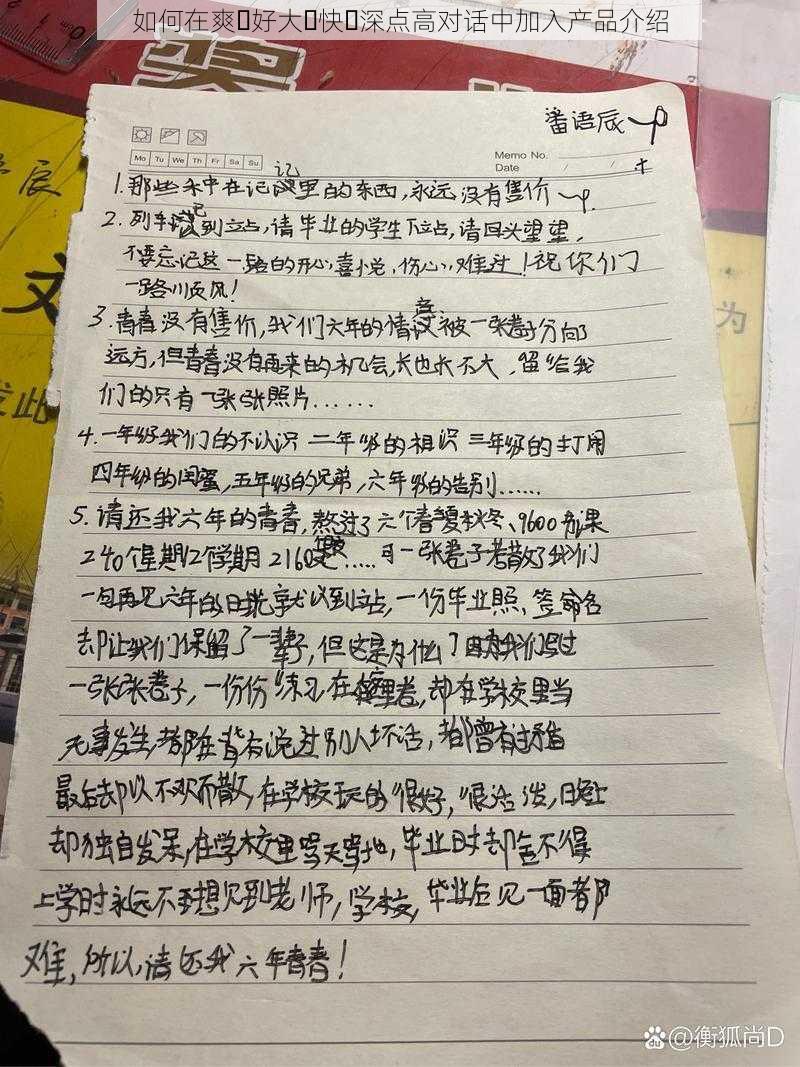 如何在爽好大快深点高对话中加入产品介绍
奖
潘语辰
Mo Tu We Th Fr Sa Su
Memo No.
Date / /
记
1.那些年中在记里的东西,永远没有售价
2.列车到立占,请毕业的学生下立占,请回头望望,
不要忘记这一路的开心,喜悦,伤心,难过!祝你们
一路顺风!
3.青春没有售价,我们六年的情被一张卷子分向
远方,但青春没有再来的机会,长也长不大,留给我
们的只有一张张照片......
4.一年级我们的不认识 二年级的相识 三年级的打闹
四年级的闺蜜,五年级的兄弟,六年级的告别......
5.请还我六年的青春,熬过了六个春夏秋冬、9600节课
240个星期12个学期2160.....可一张卷子若散了我们
一句再见六年的时光就以到立占,一份毕业照,签命名
却让我们保留了一辈子,但这是为什么?因为我们写过
一张张卷子,一份份练习,在里卷,却在学校里当
无事发生,都在背后说过别人坏话,都曾有过矛盾
最后却以不欢而散,在学校玩的很好,很活泼,晚上
却独自发呆,在学校里骂天骂地,毕业时却舍不得
上学时永远不想见到老师,学校,毕业后见一面都
难,所以,请还我六年青春!
辰
文
发此
为
Bai du @衡狐尚D